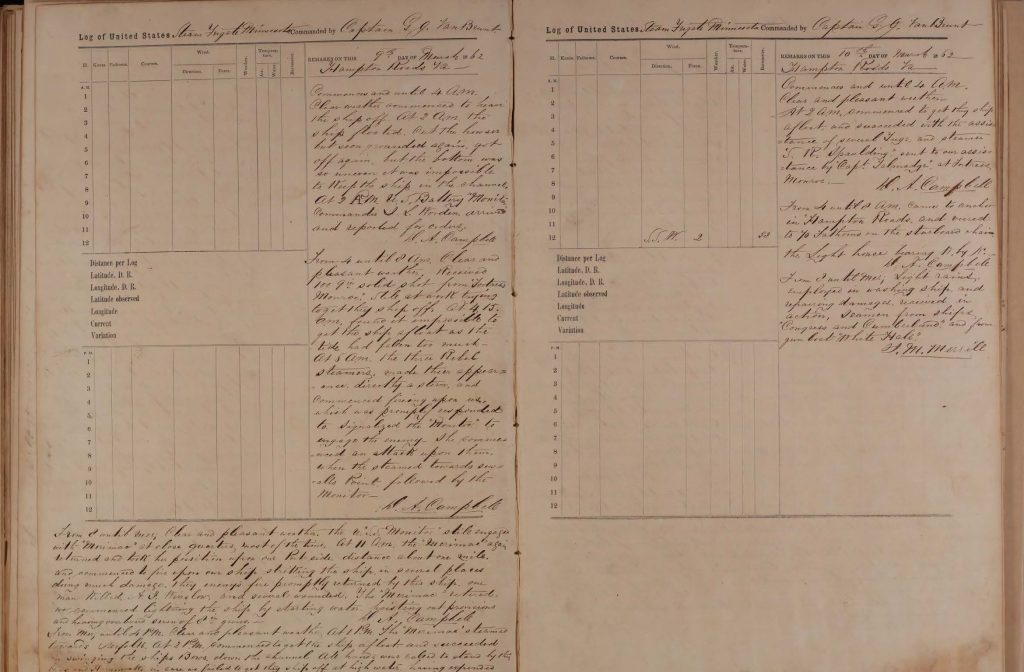 Log of United States Steam Frigate Minnesota Commanded by Captain G. J. Van Brunt
H. Knots. Fathoms. Courses. Wind. Direction. Force. Weather. Temperature. Air. Water. Barometer.
REMARKS ON THIS 9th DAY OF March 1862
Hampton Roads Va
A.M.
1
2
3
4
5
6
7
8
9
10
11
12
Commences and until 4 A.M.
Clear weather commenced to heave
the ship off. At 2 A.M. the
ship floated. Cut the hawser
but soon grounded again, got
off again, but the bottom was
so uneven it was impossible
to keep the ship in the channel,
At 2 A.M. U.S. Battery "Monitor"
Commander J L Worden arrived
and reported for orders,
D. A. Campbell
Distance per Log
Latitude. D. R.
Longitude. D. R.
Latitude observed
Longitude
Current
Variation
P.M.
1
2
3
4
5
6
7
8
9
10
11
12
From 4 until 8 A.M. Clear and
pleasant weather, Received
100 solid shot from Fortress
Monroe, Still at work trying
to get the ship off. At 4.15
A.M. found it impossible to
get the ship afloat as the
tide had fallen too much
At 8 A.M. the three Rebel
steamers, made their appear=
ance, directly astern, and
commenced fireing upon us,
which was promptly responded
to Signalized the "Monitor" to
engage the enemy. She commen
ced an attack upon them,
when she steamed towards Sew=
alls Point followed by the
Monitor
D. A. Campbell
From 8 until Mer, Clear and pleasant weather, the U.S.S. "Monitor" still engaged
with "Merrimac" at close quarters, most of the time, At 11 A.M. the "Merrimac" again
returned and took her position upon our Port side, distance about one mile.
and commenced to fire upon our ship striking the ship in several places
doing much damage. They enemys fire promptly returned by this ship, one
man killed, A. J. Winslow, and several wounded. The "Merrimac" retired.
we commenced lightning the ship by starting water, hoisting out provisions
and heaving overboard seven of 8in guns
D. A. Campbell
From Mer, until 4 P.M. Clear and pleasant weather, At 1 P.M. The Merrimac steamed
towards Norfolk, At 2 P.M. commenced to get the ship afloat and succeeded
in swinging the ships Bows down the channel All hands was called to stand by the
in case we failed to get this ship off at high water, having expended
Log of United States Steam Frigate Minnesota Commanded by Captain G. J. Van Brunt
H. Knots. Fathoms. Courses. Wind. Direction. Force. Weather. Temperature. Air. Water. Barometer.
REMARKS ON THIS 10th DAY OF March 1862
Hampton Roads Va
A.M.
1
2
3
4
5
6
7
8
9
10
11
12 S.S.W. 2 53
Commences and until 4 A.M.
Clear and pleasant weather
At 2 A.M. commenced to get this ship
afloat and succeeded with the assis
tance of several Tugs and steamer
"S. R. Spaulding" sent to our assis=
tance by "Capt. Talmadge" at Fortress
Monroe
D. A. Campbell
From 4 until 8 A.M. came to anchor
in Hampton Roads, and veered
to 70 Fathoms on the starboard chain
the Light house bearing N. by
D. A. Campbell
From 8 until Mer, Light rains,
employed in washing ship and
repairing damages, received in
action, Seamen from ships
"Congress and Cumberland" and from
gun boat "White Hall"
S. M. Merrill
Distance per Log
Latitude. D. R.
Longitude. D. R.
Latitude observed
Longitude
Current
Variation
P.M.
1
2
3
4
5
6
7
8
9
10
11
12